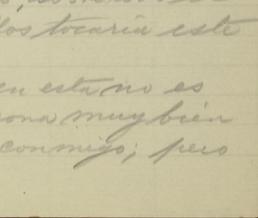 los tocaría este
en esta no es
ona muy bién
conmigo; pero